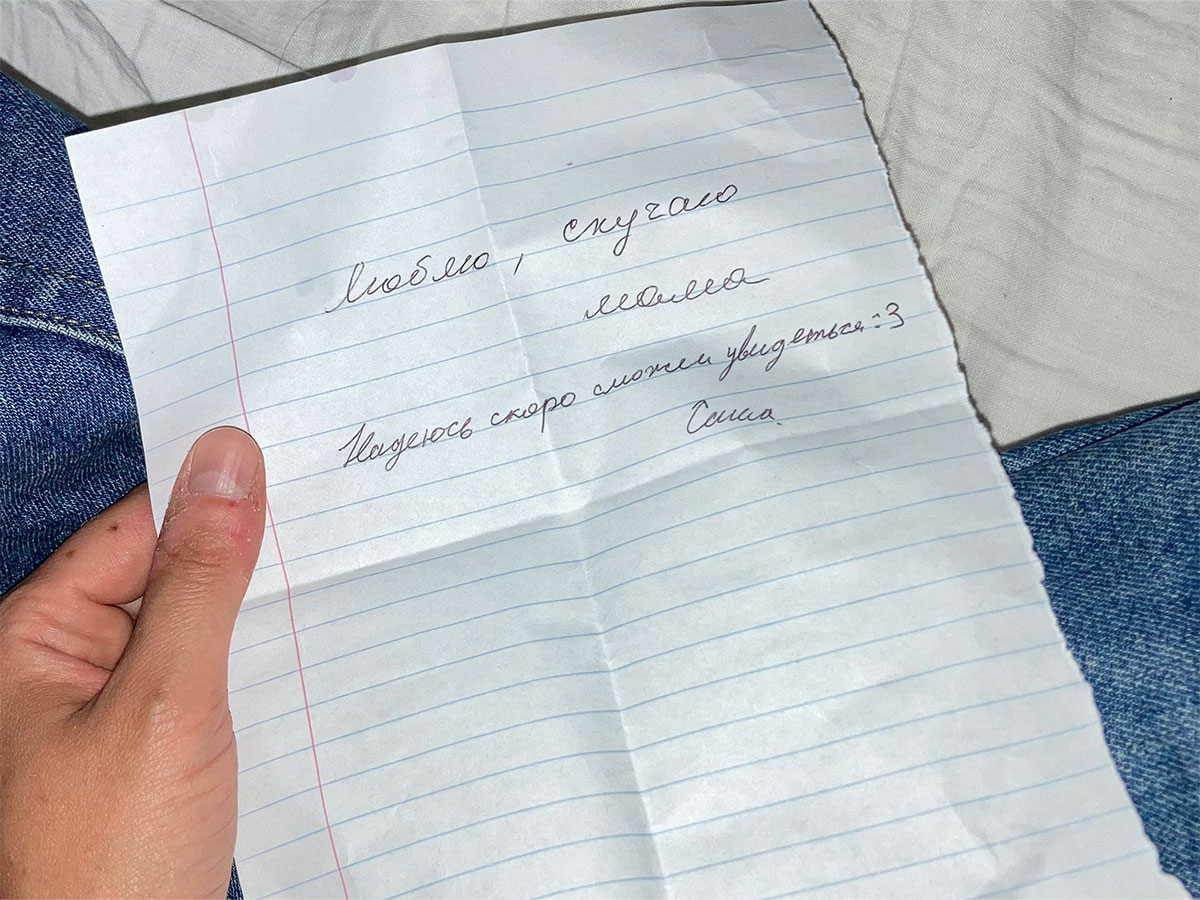 Люблю, скучаю
мама
Надеюсь скоро сможем увидеться :3
Саша.